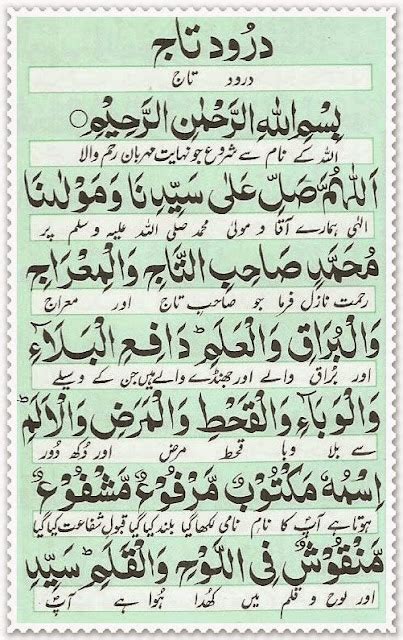 درُود تاج
درود تاج
بِسْمِ اللهِ الرَّحْمٰنِ الرَّحِيْمِ
اللہ کے نام سے شروع جو نہایت مہربان رحم والا
اَللّٰهُمَّ صَلِّ عَلٰى سَيِّدِنَا وَمَوْلٰىنَا
الٰہی ہمارے آقا و مولیٰ محمد صلی اللہ علیہ و سلم پر
مُحَمَّدٍ صَاحِبِ التَّاجِ وَالْمِعْرَاجِ
رحمت نازل فرما جو صاحب تاج اور معراج
وَالْبُرَاقِ وَالْعَلَمِ ؕ دَافِعِ الْبَلَآءِ
اور بُراق والے اور جھنڈے والے ہیں جن کے وسیلے
وَالْوَبَآءِ وَالْقَحْطِ وَالْمَرَضِ وَالْاَلَمِ ؕ
سے بلا وبا قحط مرض اور دُکھ دُور
اِسْمُهٗ مَكْتُوْبٌ مَّرْفُوْعٌ مَّشْفُوْعٌ
ہوتا ہے آپؐ کا نام نامی لکھا گیا بلند کیا گیا قبول شفاعت کیا گیا
مَّنْقُوْشٌ فِى اللَّوْحِ وَالْقَلَمِ ؕ سَيِّدِ
اور لوح و قلم میں کھُدا ہُوا ہے آپؐ